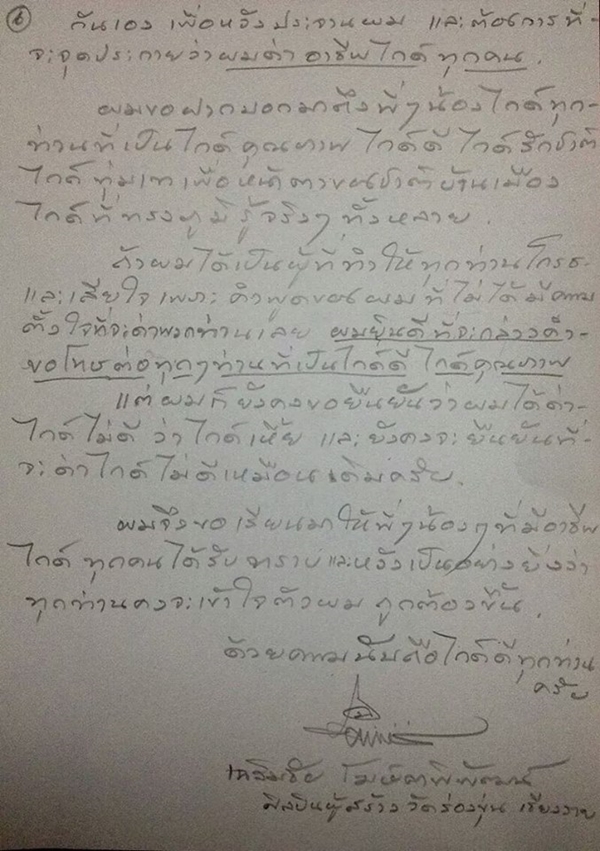 ๖
กันเอง เพื่อหวังประจานผม และต้องการที่-
จะจุดประกายว่าผมด่า อาชีพไกด์ ทุกคน.
ผมขอฝากบอกมาถึงพี่ๆน้องไกด์ทุก-
ท่านที่เป็นไกด์คุณภาพ ไกด์ดี ไกด์รักชาติ
ไกด์ทุ่มเทเพื่อหน้าตาของชาติบ้านเมือง
ไกด์ที่ทรงภูมิรู้จริงๆ ทั้งหลาย.
ถ้าผมได้เป็นผู้ที่ทำให้ทุกท่านโกรธ-
และเสียใจเพราะคำพูดของผมที่ไม่ได้มีความ
ตั้งใจที่จะด่าพวกท่านเลย ผมยินดีที่จะกล่าวคำ-
ขอโทษต่อทุกๆท่านที่เป็นไกด์ดี ไกด์คุณภาพ
แต่ผมก็ยังคงขอยืนยันว่าผมได้ด่า-
ไกด์ไม่ดี ว่าไกด์เหี้ย และยังคงจะยืนยันที่-
จะด่าไกด์ไม่ดีเหมือนเดิมครับ.
ผมจึงขอเรียนมาให้พี่ๆน้องๆที่มีอาชีพ
ไกด์ ทุกคนได้รับทราบและหวังเป็นอย่างยิ่งว่า
ทุกท่านคงจะเข้าใจตัวผม ถูกต้องขึ้น.
ด้วยความนับถือไกด์ดีทุกท่าน
ครับ
เฉลิมชัย โฆษิตพิพัฒน์
ศิลปินผู้สร้าง วัดร่องขุ่น เชียงราย